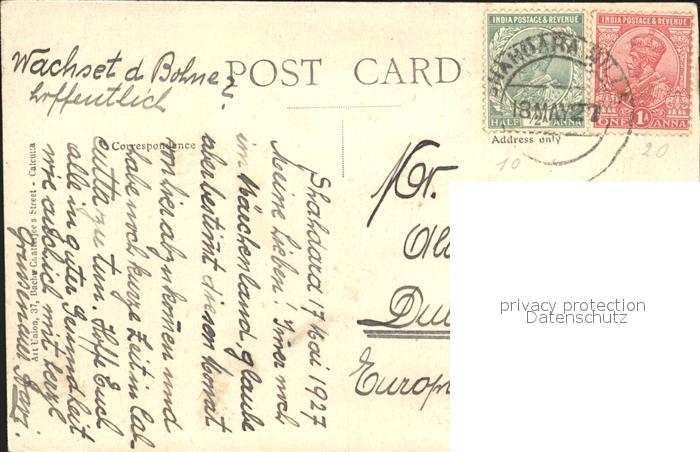 Wachset d Bohnez?
hoffentlich
POST CARD
INDIA POSTAGE & REVENUE
HALF ½ ANNA
INDIA POSTAGE & REVENUE
ONE 1A ANNA
SHAHDARA
18 MAY 27
Correspondence
Address only
10
20
Shahdara 17 Mai 1927
Meine Lieben! Imer noch
im Märchenland, glaube
aber bestimt diesen Monat
von hier abzukomen und
habe noch kurze Zeit in Cal-
cutta zu tun. Hoffe Euch
alle in guter Gesundheit
wie auch ich mit herzl
Art Union, 37, Street - Calcutta
Hr.
Europ
privacy protection
Datenschutz